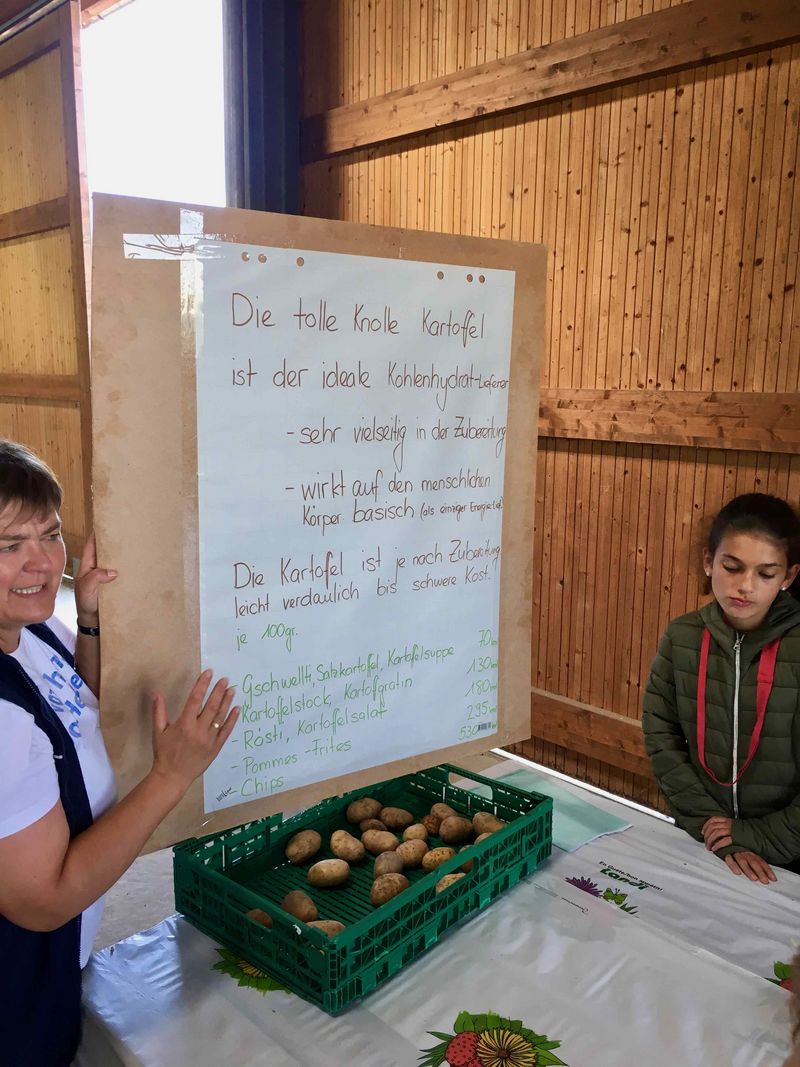 Die tolle Knolle Kartoffel
ist der ideale Kohlenhydrat-Lieferer
- sehr vielseitig in der Zubereitung
- wirkt auf den menschlichen
Körper basisch (als einziger
Die Kartoffel ist je nach Zubereitung
leicht verdaulich bis schwere Kost.
je 100gr.
- Gschwellti, Salzkartoffel, Kartoffelsuppe 70
Kartoffelstock, Kartoffgratin 130
- Rösti, Kartoffelsalat 180
- Pommes-Frites 295
- Chips 530
En Guete/bon appétit!
Landi